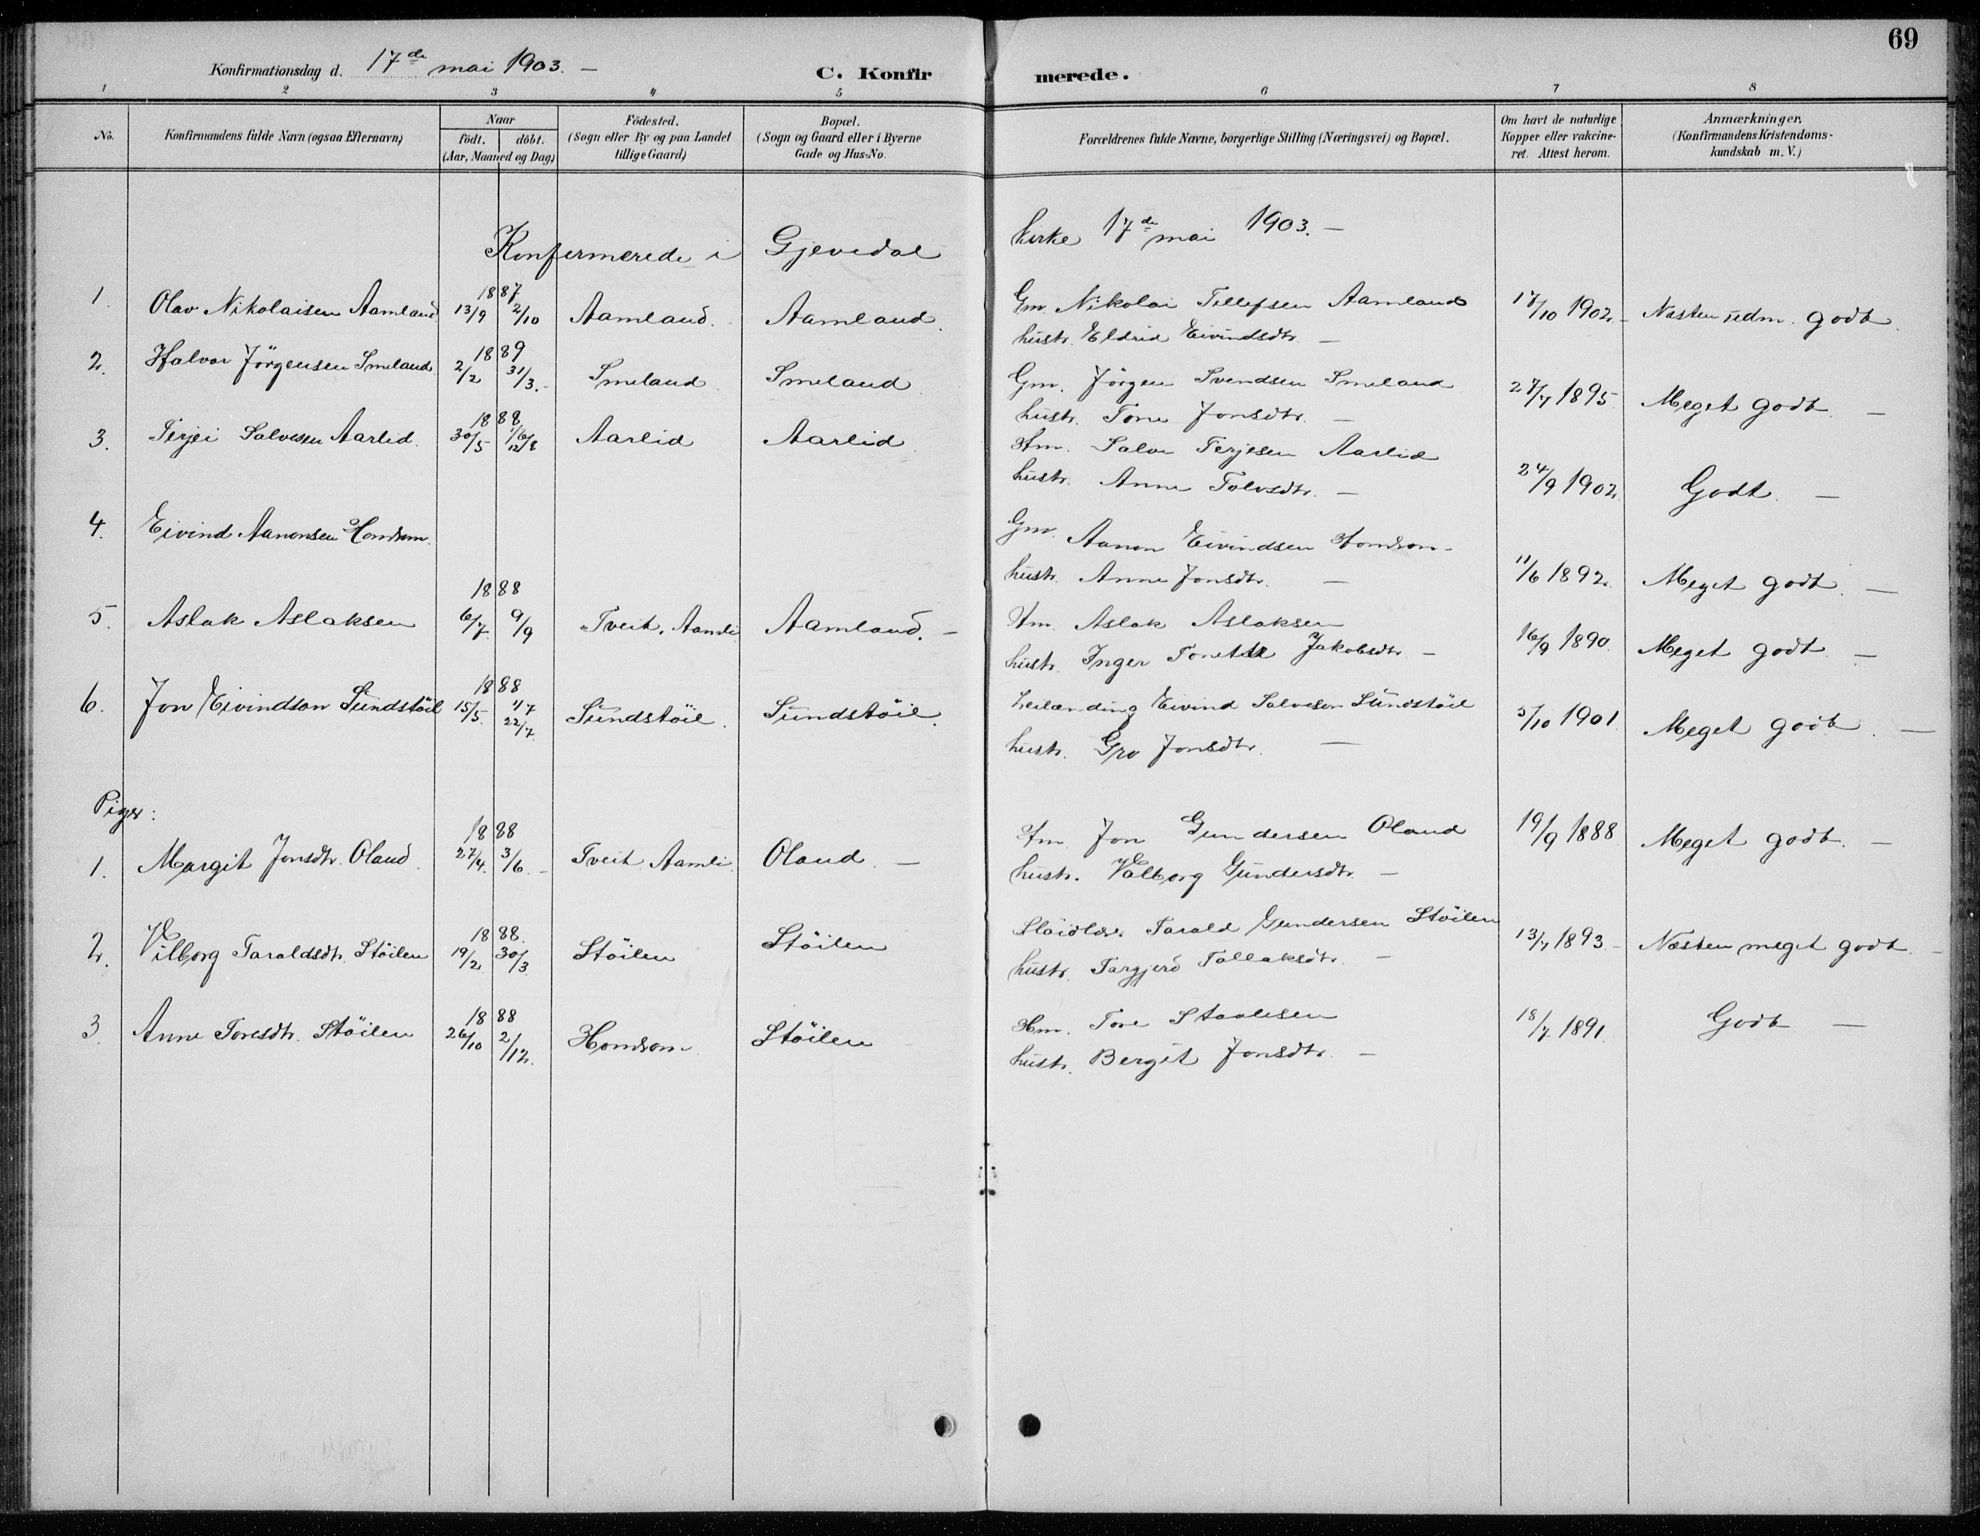 69
Konfirmationsdag d. 17de mai 1903. —
C. Konfirmerede.
1 2 3 4 5 6 7 8
No.
Konfirmandens fulde Navn (ogsaa Efternavn)
Naar
födt. döbt.
(Aar, Maaned og Dag)
Födested.
(Sogn eller By og paa Landet
tillige Gaard)
Bopæl.
(Sogn og Gaard eller i Byerne
Gade og Hus-No.
Forældrenes fulde Navne, borgerlige Stilling (Næringsvei) og Bopæl.
Om havt de naturlige
Kopper eller vakcine-
ret. Attest herom.
Anmærkninger.
(Konfirmandens Kristendoms-
kundskab m. V.)
Konfermerede i Gjevedal kirke 17de mai 1903. —
1. Olav Nikolaisen Aamland 1887 13/9 2/10 Aamland. Aamland. Gm. Nikolai Tellefsen Aamland 17/10 1902. Næsten udm. godt.
hustr. Eldrid Eivindsdtr. —
2. Halvor Jörgensen Smeland 1889 2/2 31/3. Smeland. Smeland Gm. Jörgen Svendsen Smeland 27/7 1895 Meget godt. —
hustr. Tone Jonsdtr. —
3. Terjei Salvesen Aarlid. 1888 30/5 1/6 12/8 Aarlid Aarlid Hm. Salve Terjesen Aarlid
hustr. Anne Tolvsdtr. — 24/9 1902. Godt. —
4. Eivind Aanonsen Homdrom. Gm. Aanon Eivindsen Homdrom
hustr. Anne Jonsdtr. — 11/6 1892. Meget godt. —
5. Aslak Aslaksen 1888 6/7 9/9 Tveit, Aamli Aamland. — Hm. Aslak Aslaksen
hustr. Inger Tonette Jakobsdtr. — 16/9 1890. Meget godt —
6. Jon Eivindson Sundstöil 1888 15/5. 1/7 22/7 Sundstöil. Sundstöil. Leilænding Eivind Salveson Sundstöil 5/10 1901. Meget godt. —
hustr. Gro Jonsdtr. —
Piger:
1. Margit Jonsdtr. Oland. 1888 27/4. 3/6. — Tveit Aamli Oland. — Hm Jon Gundersen Oland 19/9 1888 Meget godt. —
hustr. Valborg Gundersdtr. —
2. Vilborg Taraldsdtr. Stöilen 1888. 19/2 30/3 Stöilen Stöilen Tarald Gundersen Stöilen 13/7 1893. — Næsten meget godt. —
hustr. Targjerd Tallaksdtr. —
3. Anne Toresdtr. Stöilen 1888 26/10 2/12. Homdrom Stöilen Hm. Tore Staalesen 18/7 1891. Godt —
hustr. Bergit Jonsdtr. —